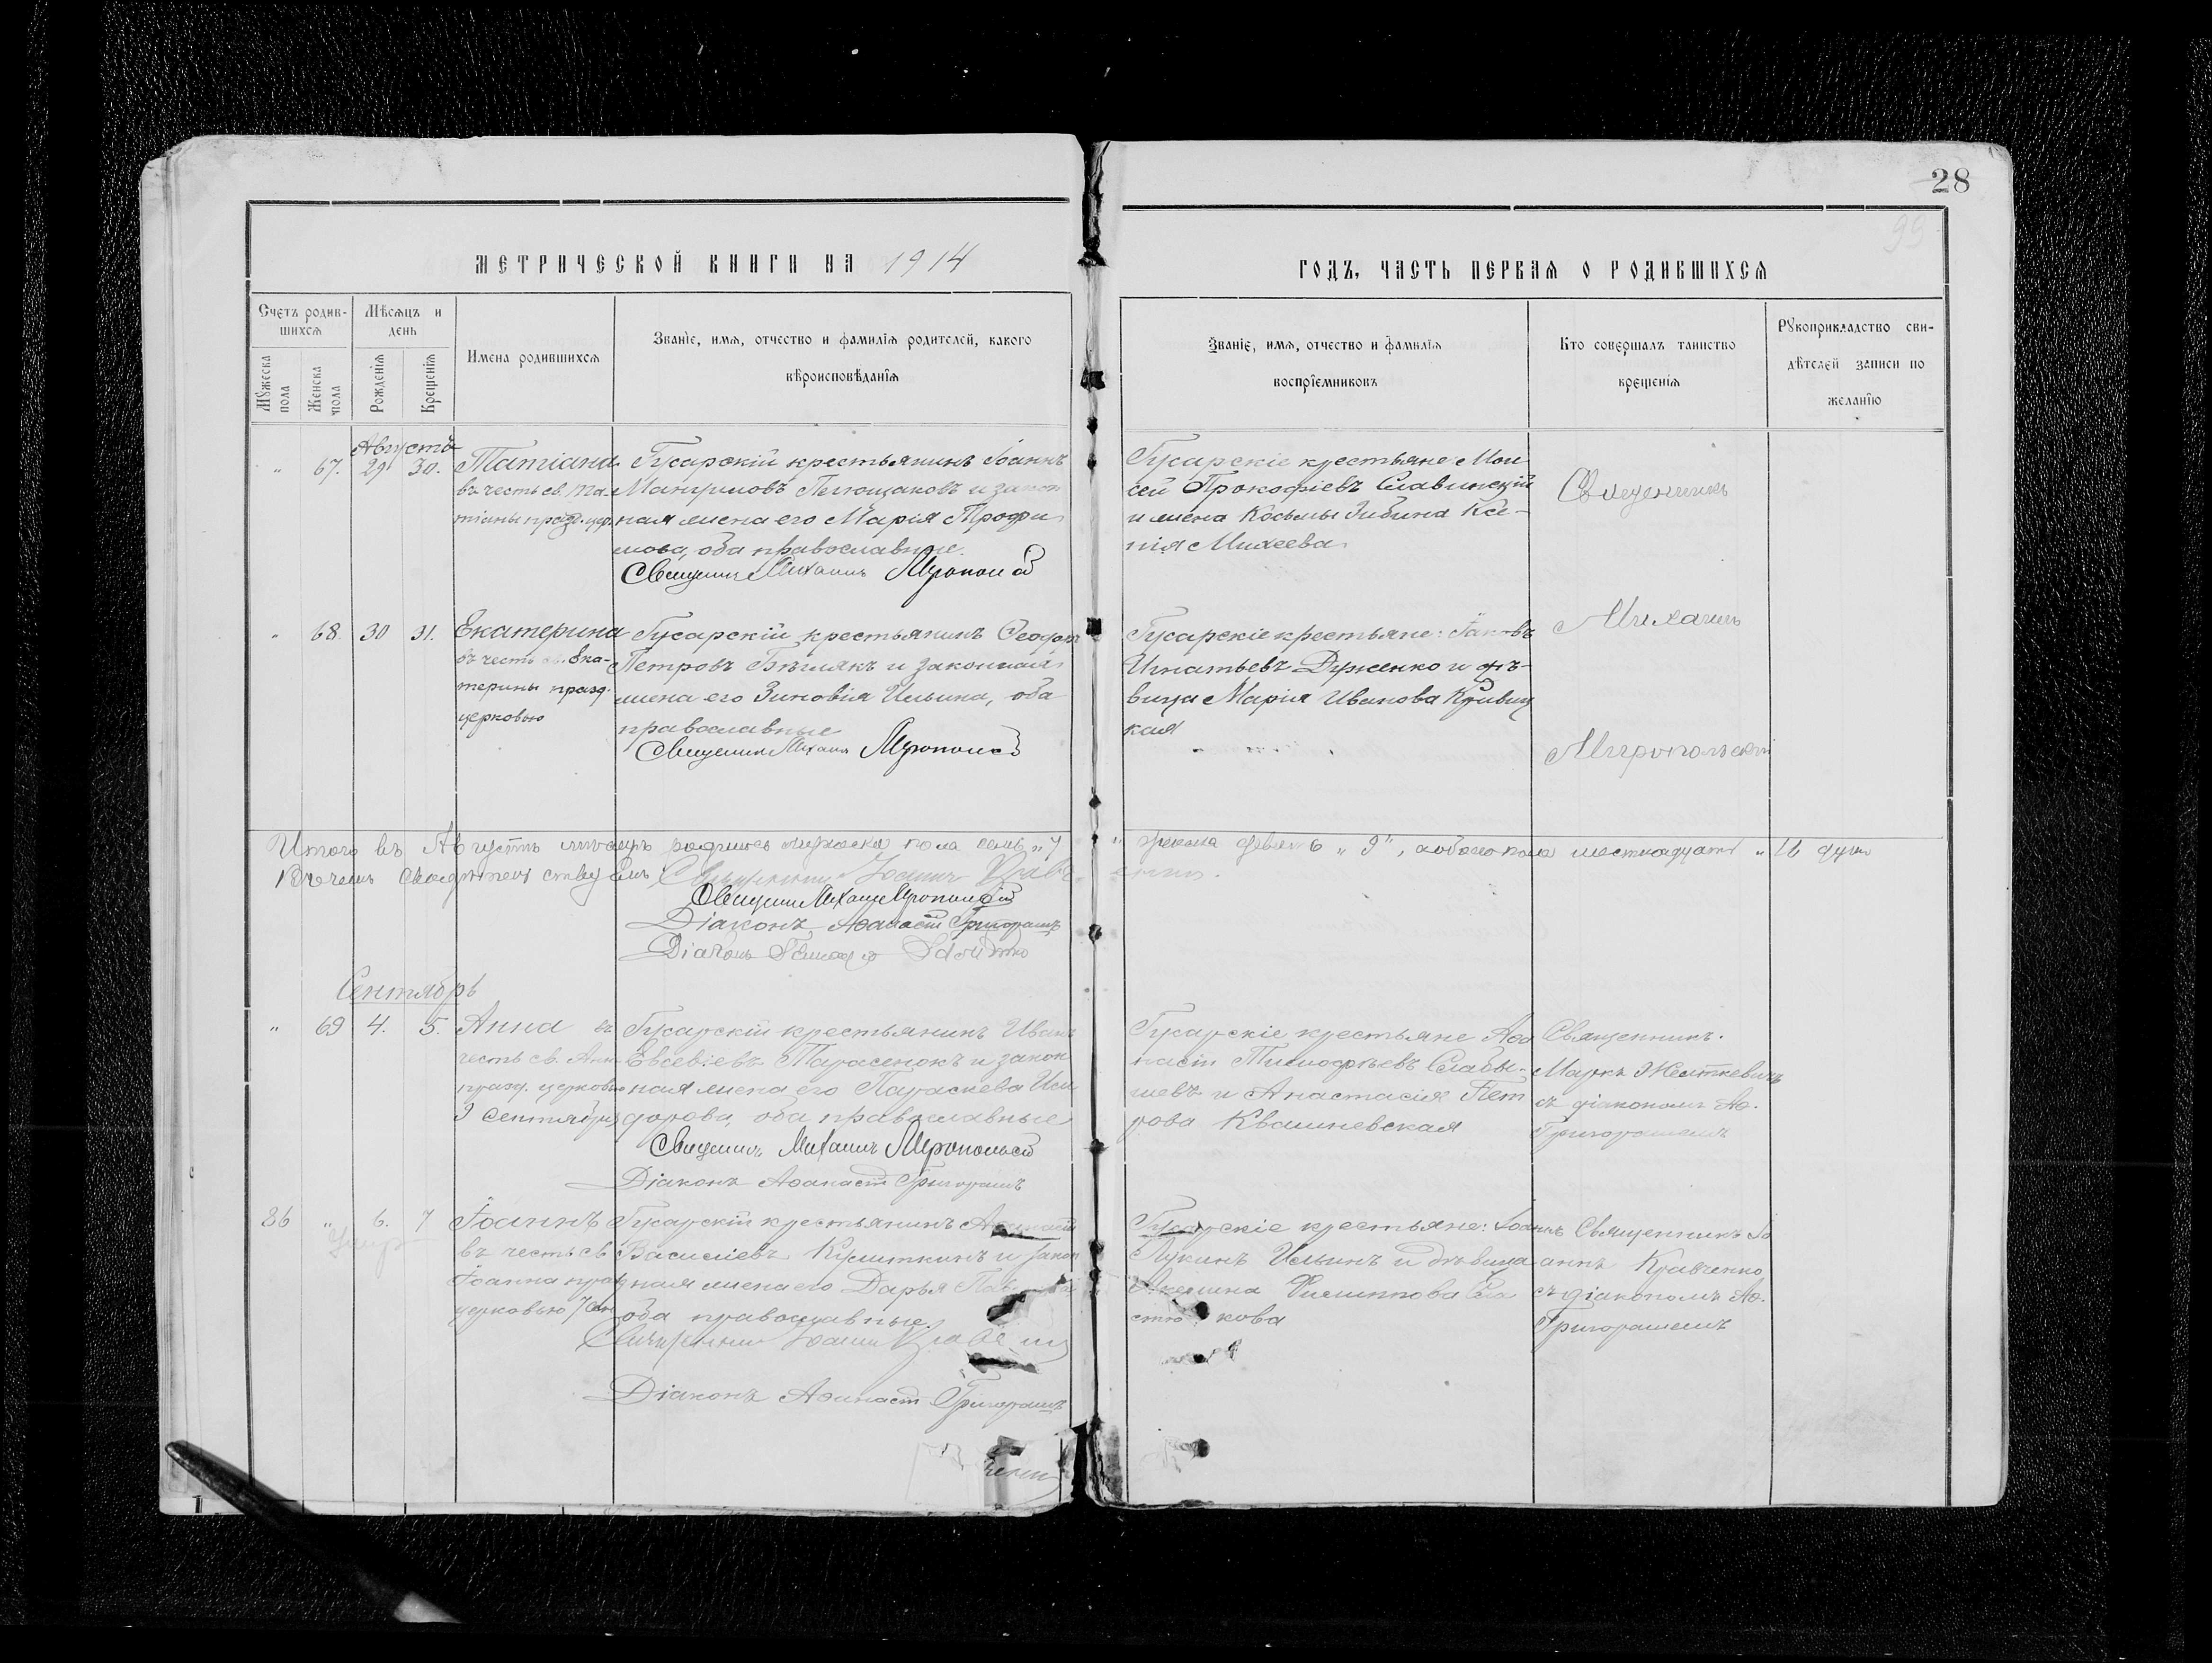 28
99
МЕТРИЧЕСКОЙ КНИГИ НА 1914
ГОДЪ, ЧАСТЬ ПЕРВАѦ О РОДИВШИХСѦ
Счетъ родив-
шихсѧ
Мѣсѧцъ и
день
Мꙋжеска
пола
Женска
пола
Рожденїѧ
Крещенїѧ
Имена родившихсѧ
Званїе, имѧ, отчество и фамилїѧ родителей, какого
вѣроисповѣданїѧ
Званїе, имѧ, отчество и фамилїѧ
воспрїемниковъ
Кто совершалъ таинство
крещенїѧ
Рꙋкоприкладство сви-
дѣтелей записи по
желанїю
Августъ
" 67. 29 30.
Татіана
въ честь св. Та-
тіаны празд. цер.
Гусарскій крестьянинъ Іоаннъ
и закон
ная жена его Марія Трофи
мова, оба православные.
Священникъ Михаилъ
Гусарскіе крестьяне: Мои
сей Прокофіевъ Славинскій
и жена Косьмы Зибина Ксе-
нія Михеева
Священникъ
Михаилъ
Миропольскій
" 68. 30 31.
Екатерина
въ честь св. Ека-
терины празд.
церковью
Гусарскій крестьянинъ Ѳеодоръ
Петровъ Бѣлякъ и законная
жена его Зиновія Ильина, оба
православные
Священникъ Михаилъ
Гусарскіе крестьяне: Іаковъ
Игнатьевъ Дуженко и дѣ-
вица Марія Иванова Кривиц
кая
Итого въ Августѣ мѣсяцѣ родилось мужеска пола семь „7
" женска девять „9", а обоего пола шестнадцать „16 душ
Въ чемъ свидѣтельствуемъ Священникъ Іоаннъ Кравченко.
Священникъ Михаилъ
Діаконъ Аѳанасій Григорашъ
Діаконъ
Сентябрь
" 69 4. 5.
Анна въ
честь св. Анны
празд. церковью
9 Сентября
Гусарскій крестьянинъ Иванъ
Евсевіевъ Тарасенокъ и закон
ная жена его Параскева Иси
дорова, оба православные
Священникъ Михаилъ Миропольскій
Діаконъ Аѳанасій Григорашъ
Гусарскіе крестьяне Аѳа
насій Тимоѳѣевъ Слабы-
шевъ и Анастасія Пет
рова Квашневская
Священникъ
Маркъ Желткевичъ
съ діакономъ Аѳ.
Григорашемъ
86 " 6. 7
умеръ
Іоаннъ
въ честь св
Іоанна празд
церковью 7 Сен
Гусарскій крестьянинъ
Василіевъ и закон
ная жена его Дарья
оба православные.
Священникъ Іоаннъ Кравченко
Діаконъ Аѳанасій Григорашъ
Гусарскіе крестьяне: Іоаннъ
Лукинъ Ильинъ и дѣвица
Акелина Филиппова
кова
Священникъ Іо
аннъ Кравченко
съ діакономъ Аѳ.
Григорашемъ